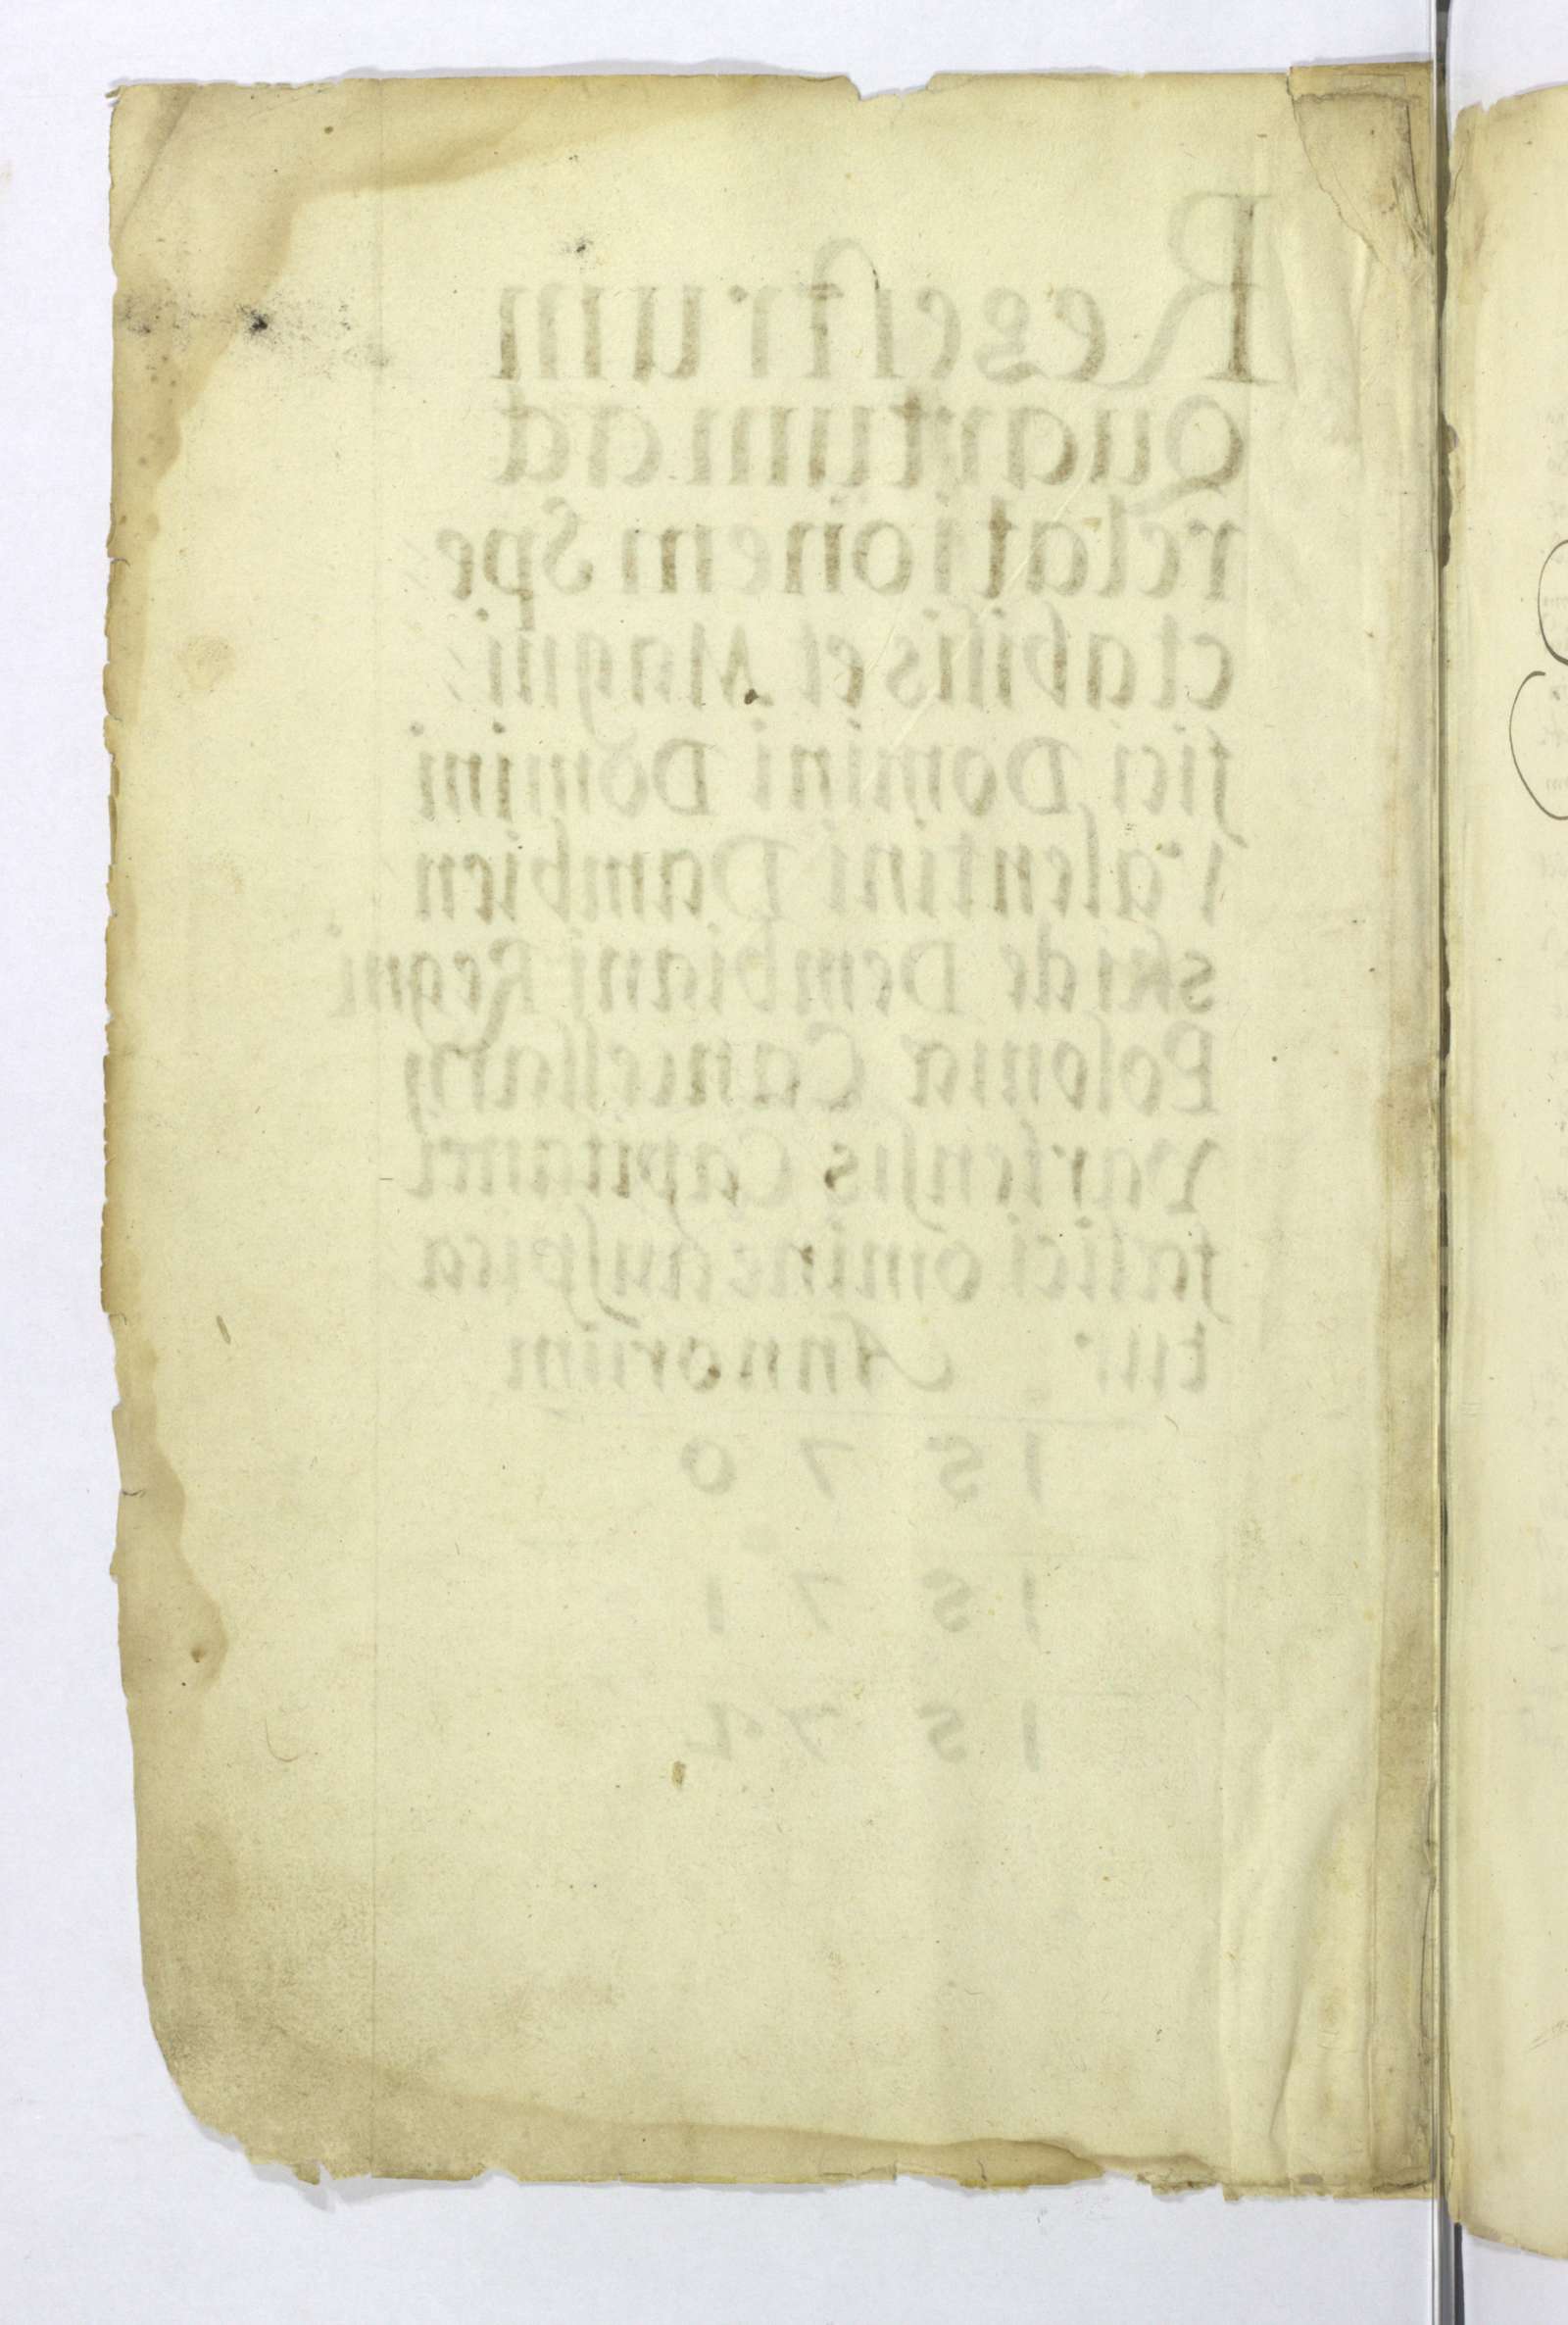 Regestrum
Quartum ad
relationem Spe
ctabilis et Magni
fici Domini Domini
Valentini Dambien
ski de Dembiani Regni
Poloniæ Cancellarij
Vartensis Capitanei
fælici omine auspica
tur Annorum
1570
1571
1572